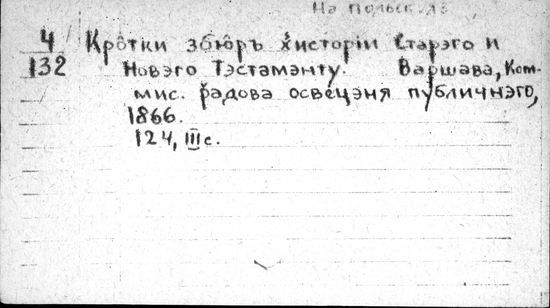 На польск. яз
4 Крôтки збіôръ хисторіи Старэго и
132 Новэго Тэстамэнту. Варшава, Ком-
мис. радова освецэня публичнэго,
1866.
124, III с.